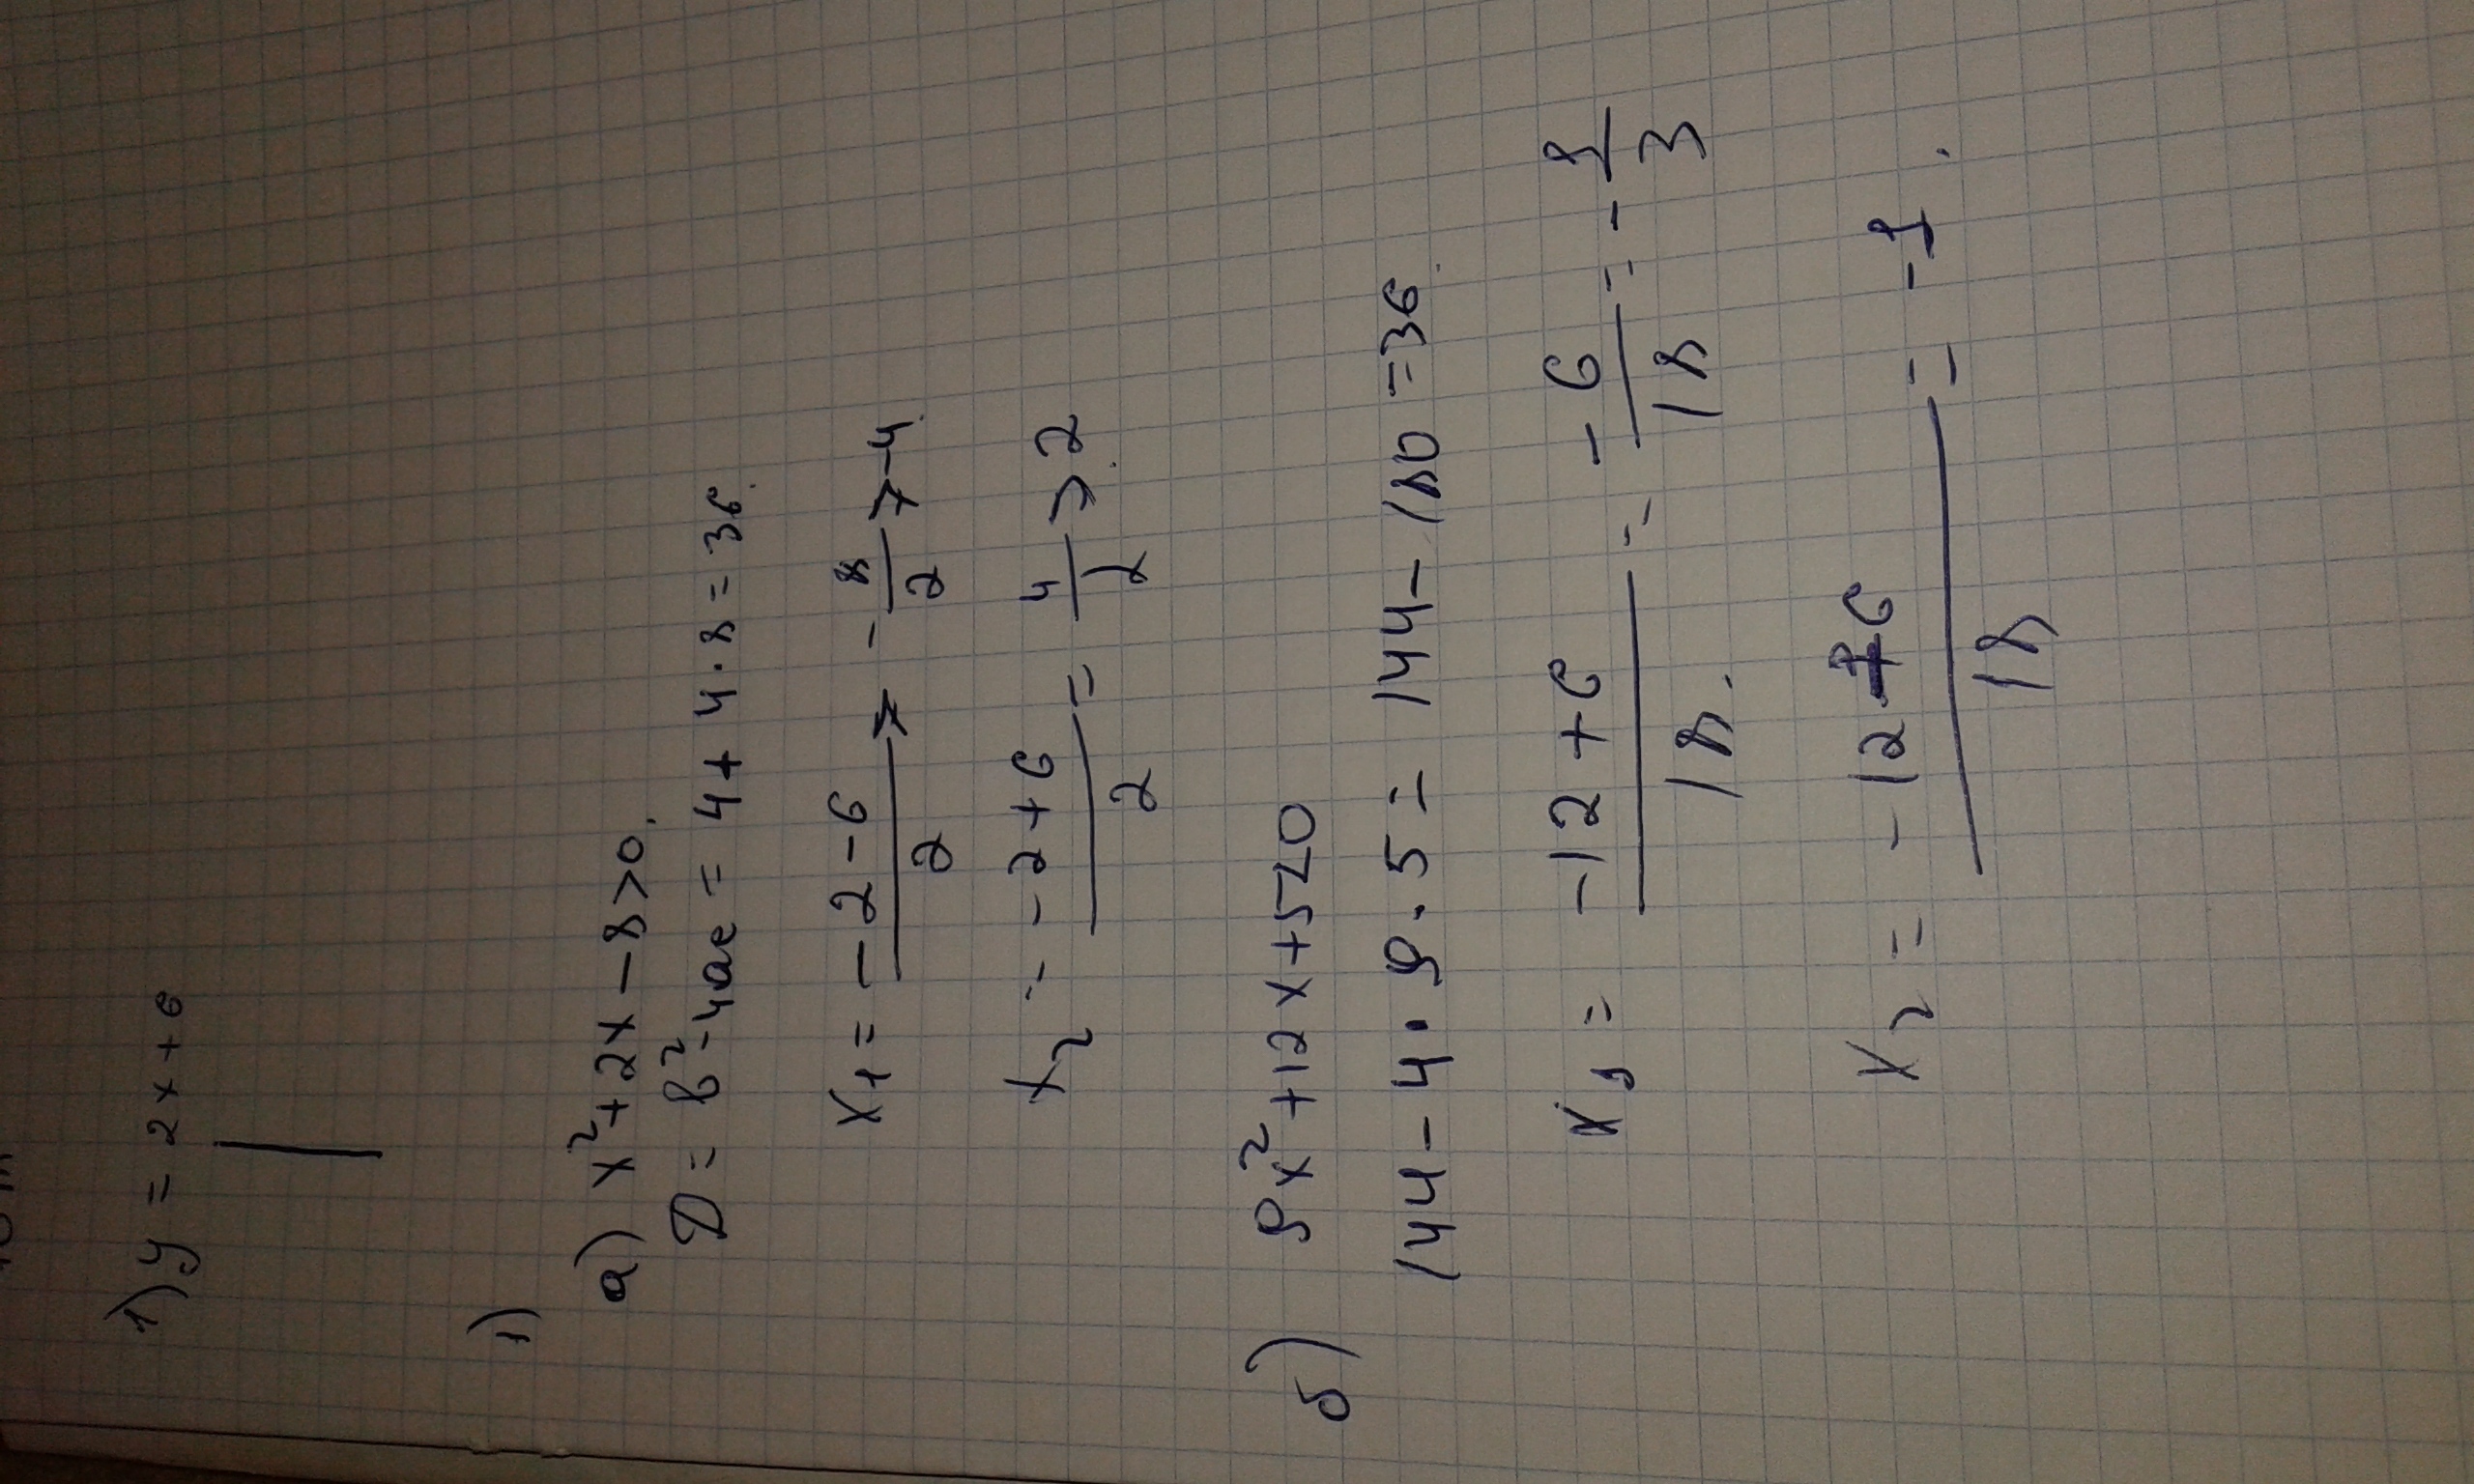 1) y = 2x + 6
1)
а) x² + 2x - 8 > 0.
D = b² - 4ac = 4 + 4 · 8 = 36.
x₁ = (-2 - 6)/2 = -8/2 > -4.
x₂ = (-2 + 6)/2 = 4/2 > 2.
б) 9x² + 12x + 5 < 0
144 - 4 · 9 · 5 = 144 - 180 = 36.
x₁ = (-12 + 6)/18. = -6/18 = -1/3
x₂ = (-12 - 6)/18 = -1.